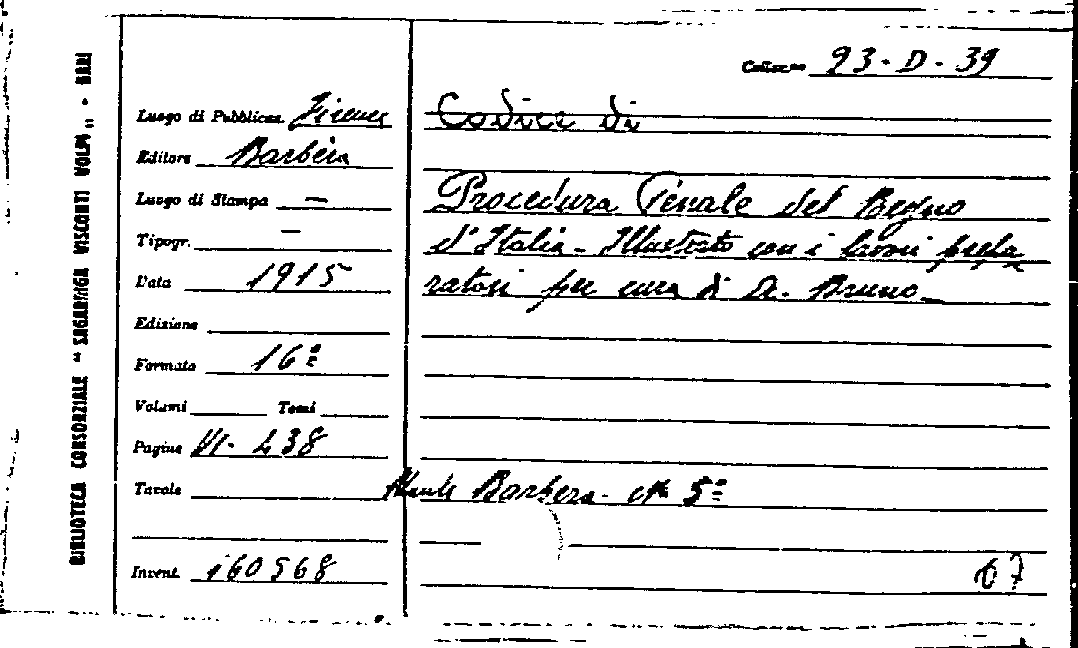 BIBLIOTECA CONSORZIALE " SAGARRIGA VISCONTI VOLPI „ - BARI
Colloc.ne 93-D-39
Luogo di Pubblicaz. Firenze
Editore Barbèra
Luogo di Stampa —
Tipogr. —
Data 1915
Edizione
Formato 16º
Volumi Tomi
Pagine VI- 438
Tavole
Invent. 160568
Codice di
Procedura Penale del Regno
d'Italia - Illustrato con i lavori prepa
ratori per cura di A. Bruno
Barbera - 5º
67